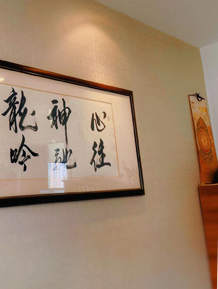 心往
神驰
龍吟